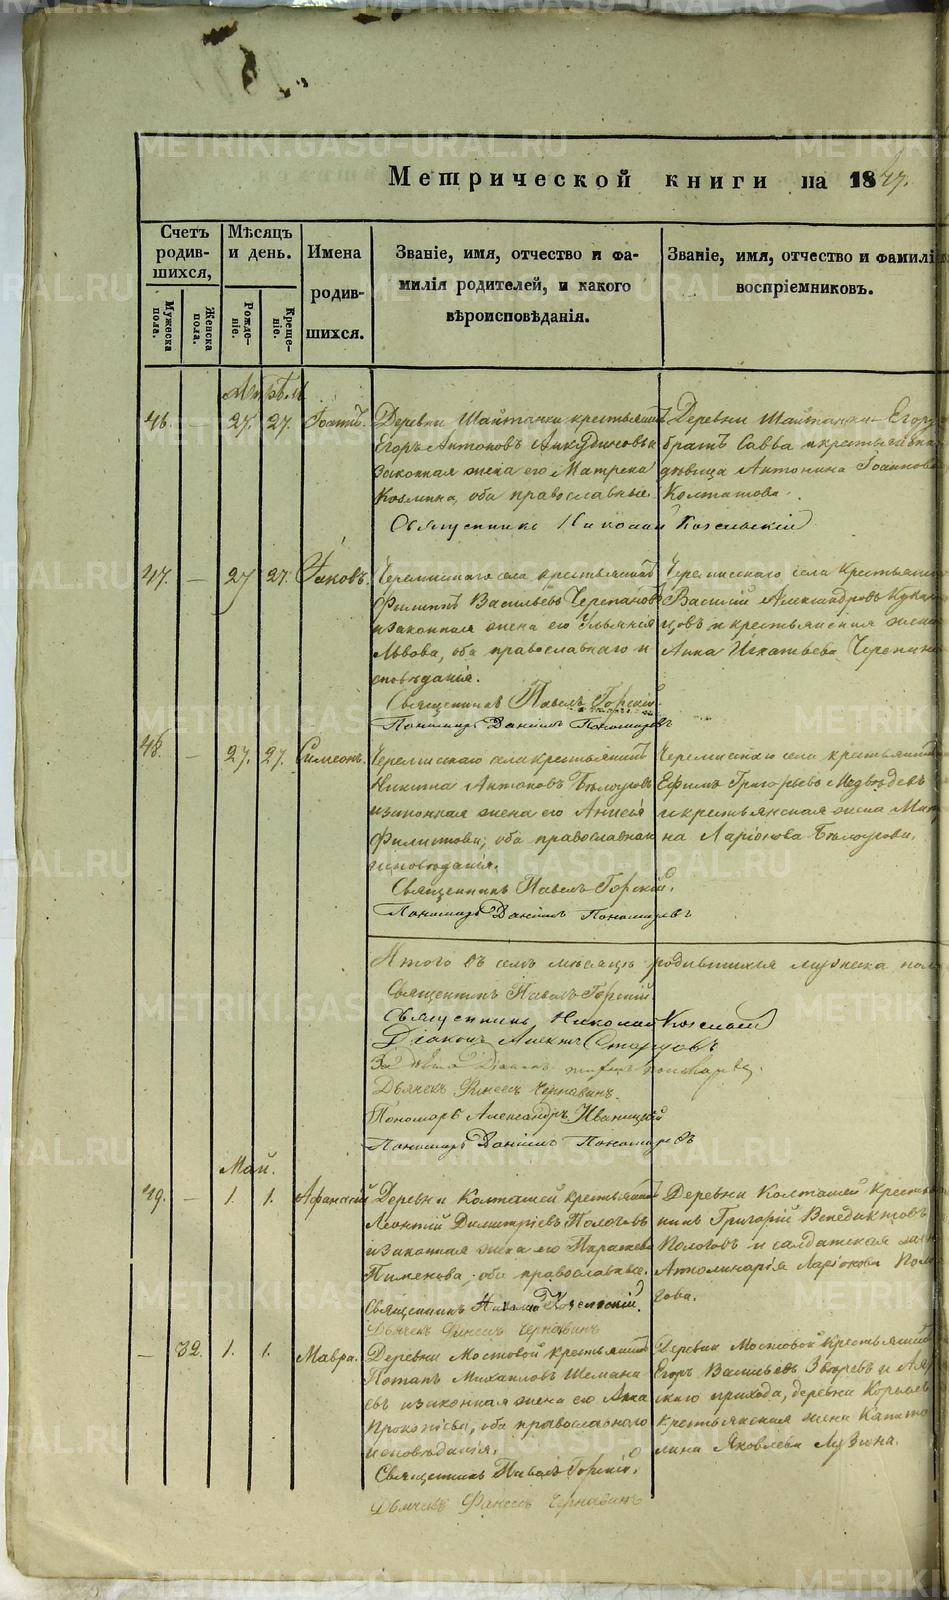 Метрической книги на 1877.
Счетъ родившихся,
Мужеска пола.
Женска пола.
Мѣсяцъ и день.
Рожденіе.
Крещеніе.
Имена родившихся.
Званіе, имя, отчество и фамилія родителей, и какого вѣроисповѣданія.
Званіе, имя, отчество и фамилія воспріемниковъ.
Апрѣль
46. — 27. 27. Іоаннъ.
Деревни Шайтанки крестьянинъ
Егоръ Антоновъ Анкудиновъ и
законная жена его Матрена
Козмина, оба православные.
Деревни Шайтанки Егор
братъ Савва и крестьянская
дѣвица Антонина Іоаннова
Колташова.
Священникъ Николай
47. — 27 27. Іаковъ.
Черемисского села крестьянинъ
Филиппъ Васильевъ Черепановъ
и законная жена его Ульянія
Львова, оба православнаго и
сповѣданія.
Черемисскаго села крестьянин
Василій Александровъ
цовъ и крестьянская жена
Анна Игнатьева
Священникъ Павелъ Горскій.
Пономарь Даніилъ Пономаревъ
48. — 27. 27. Симеонъ.
Черемисскаго села крестьянинъ
Никита Антоновъ Бѣлоусовъ
и законная жена его Анисія
Филиппова, оба православнаго
исповѣданія.
Черемисскаго села крестьянинъ
Ефимъ Григорьевъ Медвѣдевъ
и крестьянская жена
на Ларіонова Бѣлоусова.
Священникъ Павелъ Горскій.
Пономарь Даніилъ Пономаревъ
Итого въ семъ мѣсяцѣ родившихся мужеска пол
Священникъ Павелъ Горскій
Священникъ Николай
Діаконъ
Дьячекъ Финеесъ Чернавинъ.
Пономарь Александръ Иваницкій
Пономарь Даніилъ Пономаревъ
Май.
49. — 1. 1. Афанасій
Деревни Колташей крестьянинъ
Леонтій Димитріевъ Пологовъ
и законная жена его Параскева
Пименова, оба православные.
Деревни Колташей крестья
нинъ Григорій Венедиктовъ
Пологовъ и салдатская
Апполинарія Ларіонова Поло
гова.
Священникъ Николай
Дьячекъ Финеесъ Чернавинъ
— 32. 1. 1. Мавра.
Деревни Мостовой крестьянинъ
Потапъ Михаиловъ Шемана
евъ и законная жена его Анна
Прокопіева, оба православнаго
исповѣданія.
Деревни Мостовой крестьянинъ
Егоръ Васильевъ Звѣревъ и
скаго прихода, деревни
крестьянская жена Капито
лина Яковлева Лузина.
Священникъ Павелъ Горскій.
Дьячекъ Финеесъ Чернавинъ
METRIKI.GASO-URAL.RU